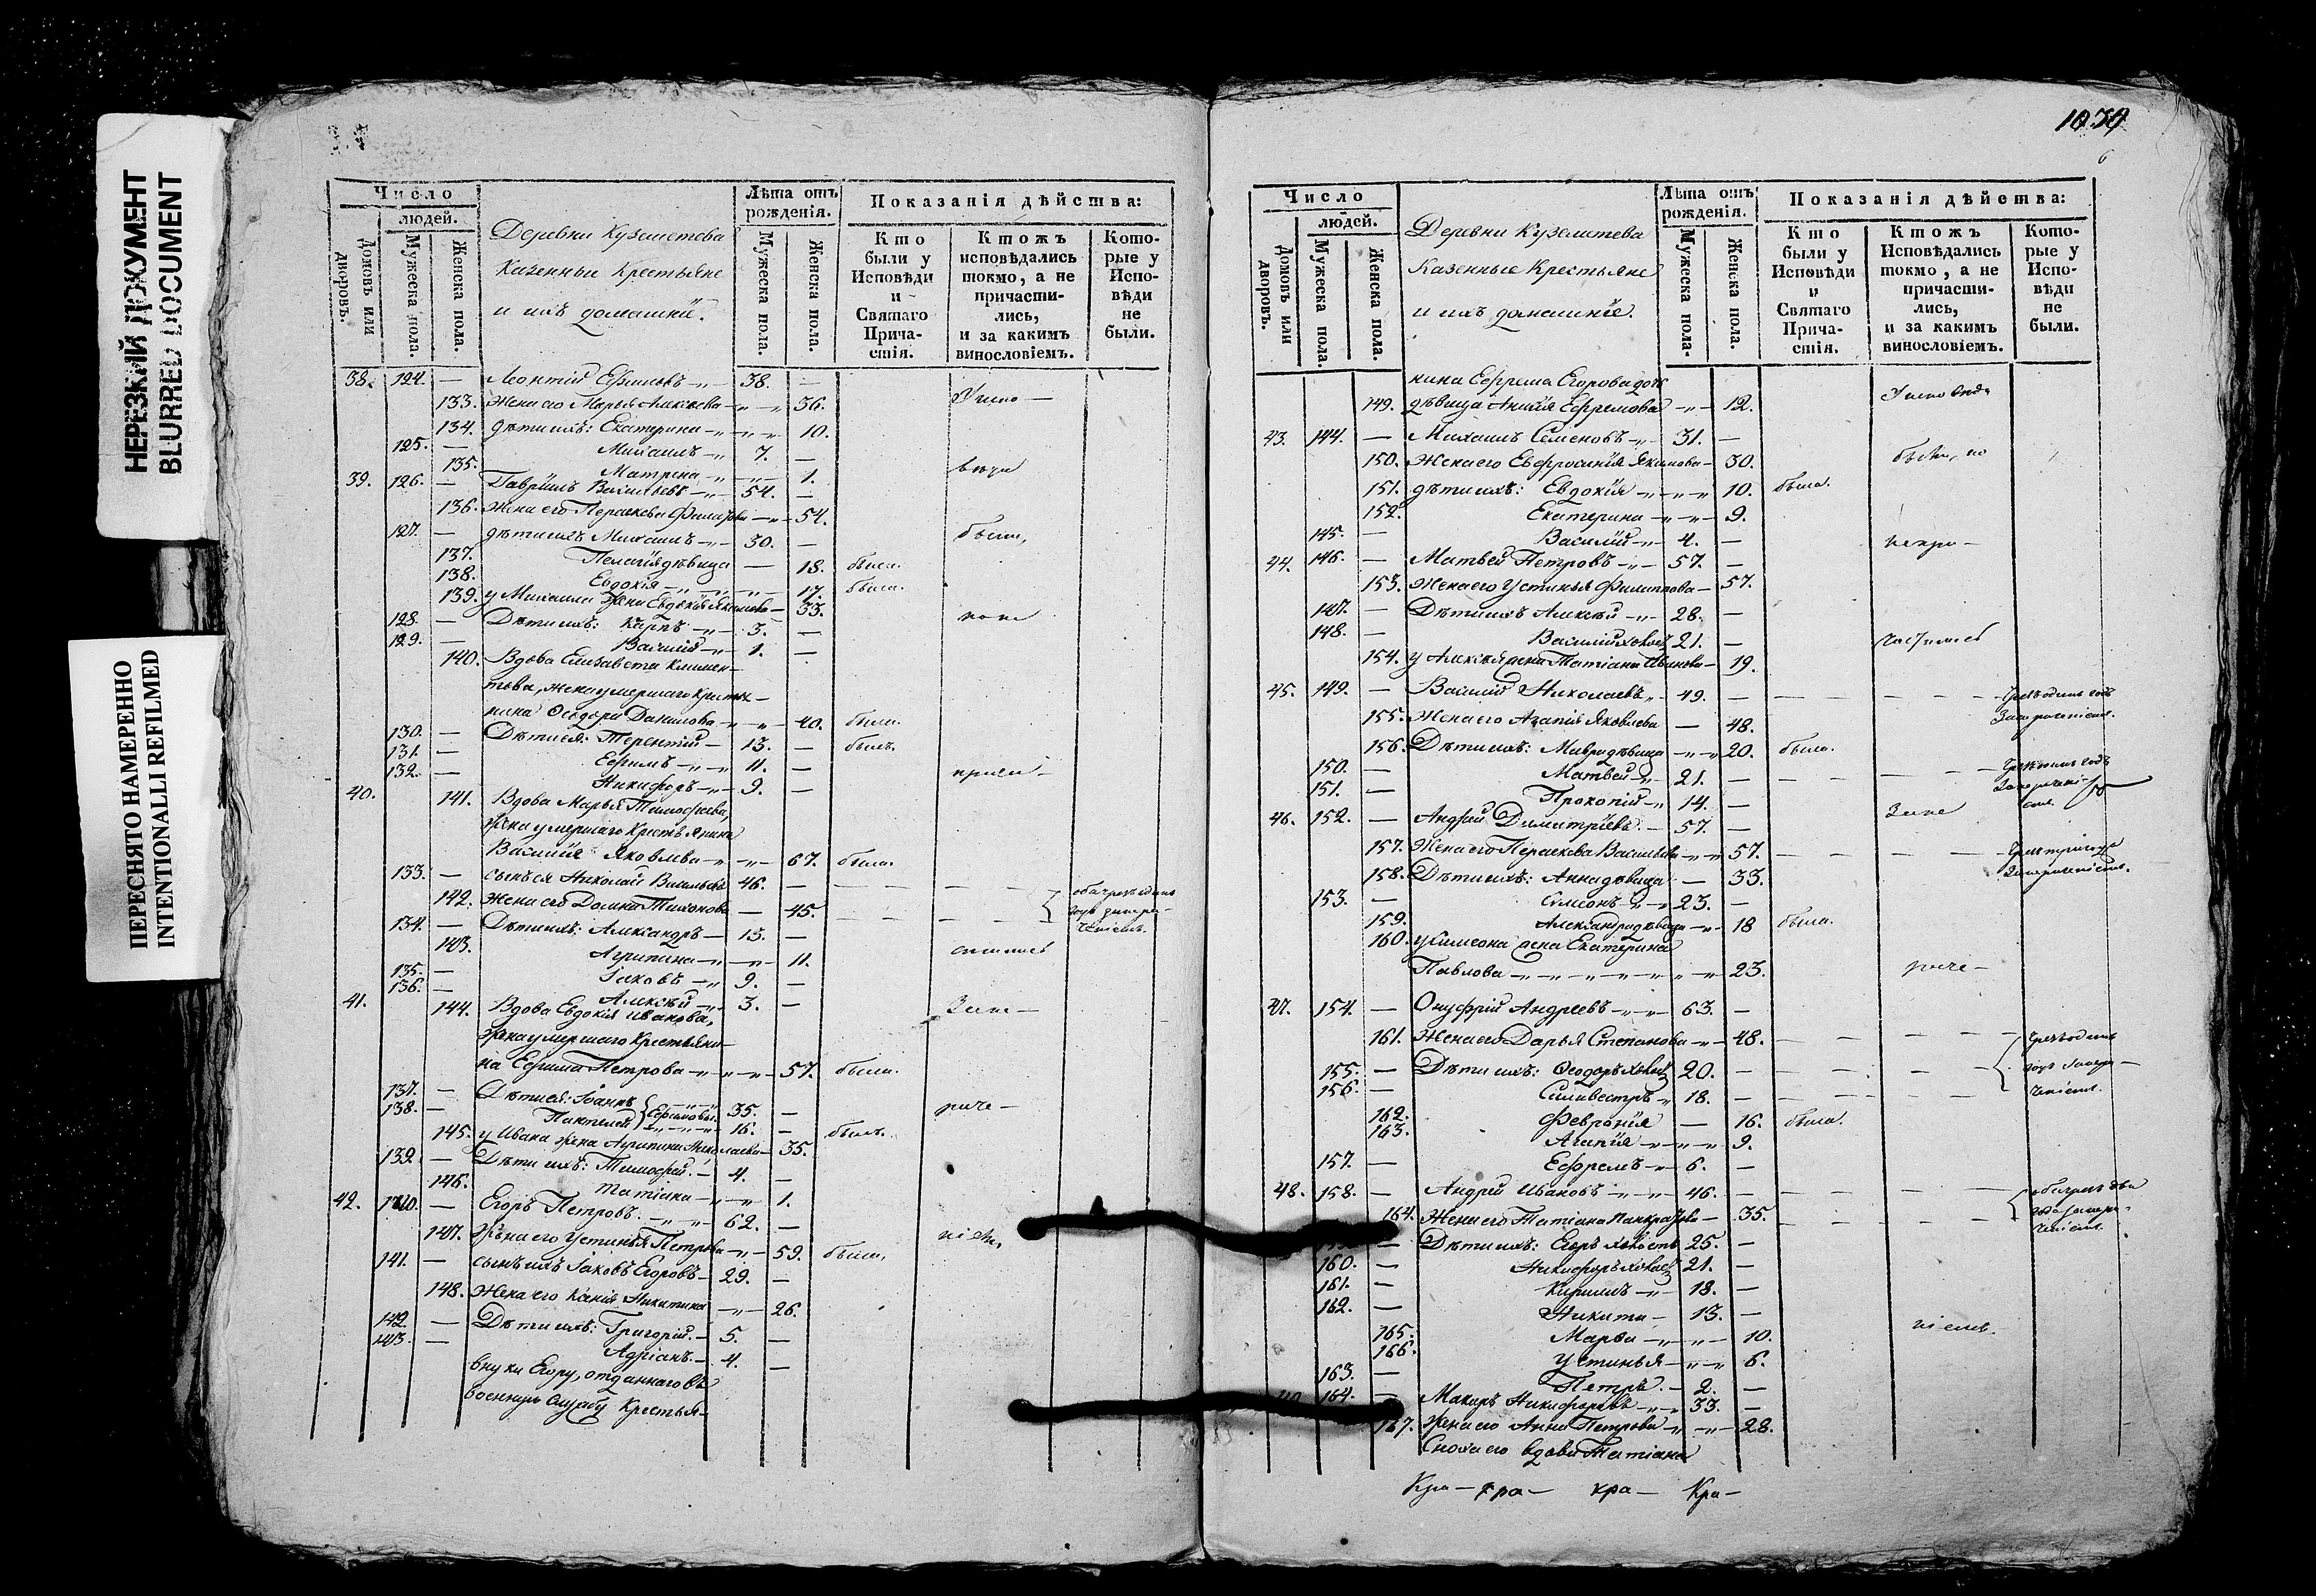 НЕРЕЗКИЙ ДОКУМЕНТ
BLURRED DOCUMENT
ПЕРЕСНЯТО НАМЕРЕННО
INTENTIONALLI REFILMED
Число
людей.
Домовъ или дворовъ.
Мужеска пола.
Женска пола.
Деревни Куземетева
Казенные Крестьяне
и ихъ домашнїе.
Лѣта отъ рожденія.
Мужеска пола.
Женска пола.
Показанія дѣйства:
Кто были у Исповѣди и Святаго Причастія.
Ктожъ исповѣдались токмо, а не причастились, и за какимъ винословіемъ.
Которые у Исповѣди не были.
38. 124. — Леонтій Ефимовъ 38. —
133. Жена его Марья Алексѣева 36.
134. Дѣти ихъ: Екатерина 10.
125. — Михаилъ 7. —
135. Матрена 1.
39. 126. — Гаврїилъ Васильевъ 54. —
136. Жена его Параскева Филатова 54.
127. — Дѣти ихъ Михаилъ 30. — были,
137. Пелагія дѣвица — 18. была.
138. Евдокія 17. была.
139. у Михаила жена Евдокія Якимова 33.
128. — Дѣти ихъ: Карпъ 3. —
129. — Василій 1. —
140. Вдова Елизавета Климен-
това, жена умершаго крестья-
нина Ѳеодора Данилова 40. была.
130. — Дѣти ея: Терентій 13. — былъ.
131. — Ефимъ 11. —
132. — Никифоръ 9. —
40. 141. Вдова Марья Тимофеева,
жена умершаго Крестьянина
Василія Яковлева 67. была.
133. — сынъ ея Николай Васильевъ 46. —
142. Жена его Домна Тихонова — 45.
134. — Дѣти ихъ: Александръ 13. —
143. Агрипина 11.
135. — Іаковъ 9. —
136. — Алексѣй 3. —
41. 144. Вдова Евдокія Иванова,
жена умершаго Крестьяни-
на Ефима Петрова 57. была.
137. — Дѣти ея: Іоаннъ Ефимовы 35. —
138. — Пантелей 16. — былъ.
145. у Ивана жена Агрипина Николаева 35.
139. — Дѣти ихъ: Тимофей 4. —
146. Татіана 1.
42. 140. — Егоръ Петровъ 62. —
147. Жена его Устинья Петрова 59. были,
141. — сынъ ихъ Іаковъ Егоровъ 29. —
148. Жена его Ксенія Никитина 26.
142. — Дѣти ихъ: Григорій 5. —
143. — Адріанъ 4. —
внука Егору, отданнаго въ
военную службу Крестья-
1039
6
Число
людей.
Домовъ или дворовъ.
Мужеска пола.
Женска пола.
Деревни Куземетева
Казенные Крестьяне
и ихъ домашніе.
Лѣта отъ рожденія.
Мужеска пола.
Женска пола.
Показанія дѣйства:
Кто были у Исповѣди и Святаго Причастія.
Ктожъ Исповѣдались токмо, а не причастились, и за какимъ винословіемъ.
Которые у Исповѣди не были.
нина Ефрема Егорова дочь
149. дѣвица Анисія Ефремова 12.
43. 144. — Михаилъ Семеновъ 31. —
150. Жена его Евфросинія Якимова 30.
151. дѣти ихъ: Евдокія 10. была.
152. Екатерина 9.
145. — Василій 4. —
44. 146. — Матвей Петровъ 57. —
153. Жена его Устинья Филиппова 57.
147. — Дѣти ихъ Алексѣй 28. —
148. — Василій холостъ 21. —
154. у Алексѣя жена Татіана Иванова 19.
45. 149. — Василій Николаевъ 49. —
155. Жена его Агапія Яковлева — 48.
156. Дѣти ихъ: Мавра дѣвица 20. была.
150. — Матвей 21. —
151. — Прокопій 14. —
46. 152. — Андрей Димитріевъ 57. —
157. Жена его Параскева Васильева 57.
158. Дѣти ихъ: Анна дѣвица — 33.
153. — Симеонъ 23. —
159. Александра дѣвица 18 была.
160. у Симеона жена Екатерина
Павлова 23.
47. 154. — Онуфрій Андреевъ 63. —
161. Жена его Дарья Степанова 48.
155. — Дѣти ихъ: Ѳеодоръ холостъ 20. —
156. — Силивестръ 18. —
162. Февронія — 16. была.
163. Агапія 9.
157. — Ефремъ 6. —
48. 158. — Андрей Ивановъ 46. —
164. Жена его Татіана Панкратова 35.
— Дѣти ихъ: Егоръ холостъ 25. —
160. — Никифоръ холостъ 21. —
161. — Кирилъ 18. —
162. — Никита 13. —
165. Марфа 10.
166. Устинья 6.
163. — Петръ 2. —
164. — Макаръ Никифоровъ 33. —
167. Жена его Анна Петрова 28.
Сноха его вдова Татіана
Кра — кра — кра — Кра —